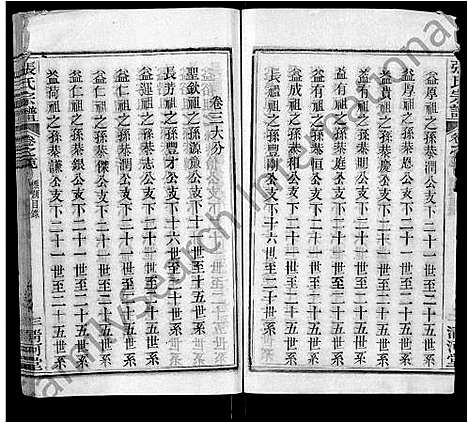 益厚祖之孫恭潤公支下二十一世至二十五世系
益厚祖之孫恭恩公支下二十一世至二十五世系
益貴祖之孫恭順公支下二十一世至二十五世系
益有祖之孫恭慶公支下二十一世至二十五世系
益有祖之孫恭庭公支下二十一世至二十五世系
益成祖之孫恭和公支下二十一世至二十五世系
長房祖之孫豐剛公支下十六世至二十世系
卷三大分
聖欽祖之孫源公支下二十世至二十五世系
長房祖之孫豐才公支下十六世至二十世系
益運祖之孫恭志公支下二十一世至二十五世系
益仁祖之孫恭仁公支下二十一世至二十五世系
益仁祖之孫恭傑公支下二十一世至二十五世系
益荷祖之孫恭謙公支下二十一世至二十五世系
張氏宗譜
目錄
三
清河堂
張氏宗譜
清河堂
FamilySearch International